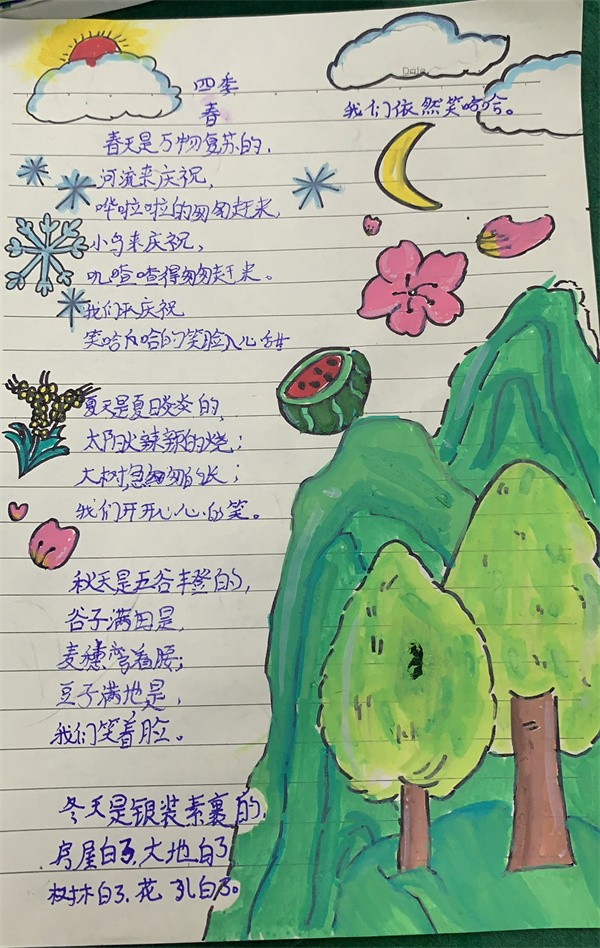 Date
四季
春
春天是万物复苏的,
河流来庆祝,
哗啦啦的匆匆赶来,
小鸟来庆祝、
叽喳喳得匆匆赶来。
我们来庆祝
笑哈哈的笑脸心甜
夏天是夏日炎炎的,
太阳火辣辣的烧;
大树急匆匆的长;
我们开开心心的笑。
秋天是五谷丰登的,
谷子满田是,
麦穗弯着腰;
豆子满地是,
我们笑着脸。
冬天是银装素裹的,
房屋白了,大地白了
树林白了、花儿白了。
我们依然笑哈哈。